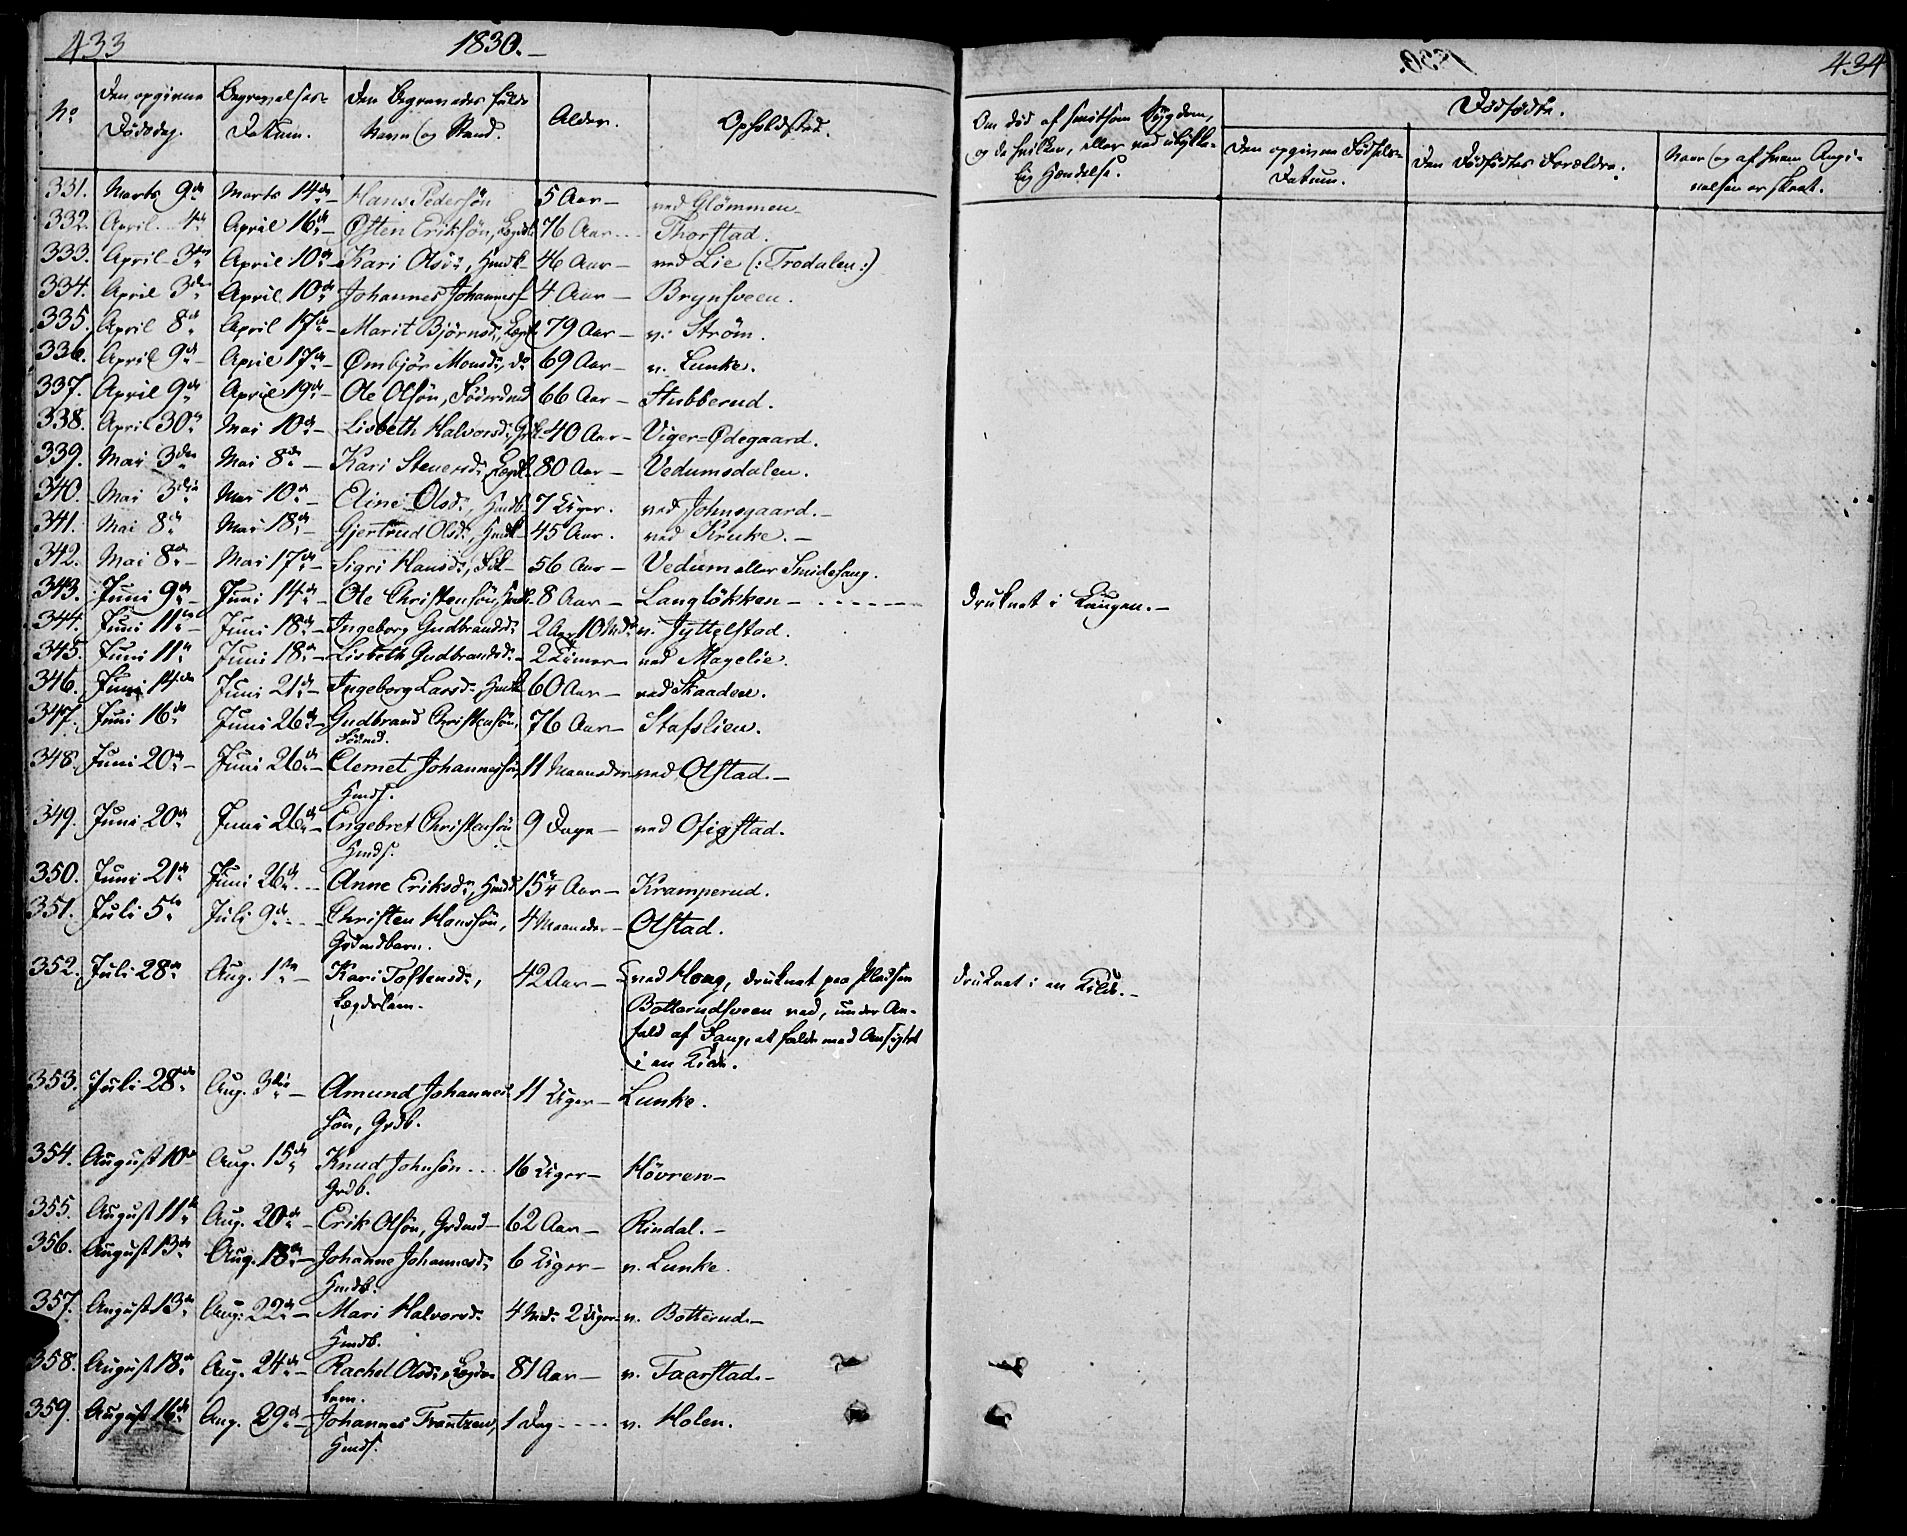 433 1830.-
No Den opgivne Dødsdag. Begravelses-Datum. Den Begravedes fulde Navn og Stand. Alder. Opholdsted.
331. Marts 9de Marts 14de - Hans Pedersön 5 Aar - ved Glömmen -
332. April 4de April 16de - Østen Eriksön, Lægdsl. 76 Aar - Thorstad.
333. April 3die April 10de - Kari Olsd:, Hmdk - 46 Aar - ved Lie (: Trodalen :)
334. April 3die April 10de Johannes Johannesf. 4 Aar - Brynsveen.
335. April 8de April 17de - Marit Björnsd:, Lægdl. 79 Aar - v. Ström.
336. April 9de - April 17de - Ømbjör Monsd:, do 69 Aar - v. Lunke.
337. April 9de April 19de - Ole Olsön, Föderdmd 66 Aar - Stubberud.
338. April 30te Mai 10de - Lisbeth Halvorsd:, Grk - 40 Aar - Viger=Ødegaard.
339. Mai 3die Mai 8de - Kari Stenersd: Lægdl. 80 Aar - Vedumsdalen.
340. Mai 3die Mai 10de - Eline Olsd:, Hmdb. 7 Uger. ved Johnsgaard. -
341. Mai 8de Mai 18de - Gjertrud Olsd:, Hmdk - 45 Aar. ved Kruke. -
342. Mai 8de - Mai 17de - Sigri Hansd:, Fdk - 56 Aar - Vedum eller
343. Juni 9de - Juni 14de - Ole Christensön, Hmdb. 8 Aar - Langlökken - druknet i Laugen. -
344. Juni 11te - Juni 18de - Ingeborg Gudbrandsd: 2 Aar 10 Mdr v. Jyttelstad.
345. Juni 11te Juni 18de - Lisbeth Gudbrandsd: - 2 Timer - ved Magelie.
346. Juni 14de Juni 21de - Ingeborg Larsd: Hmdk 60 Aar - ved Skaaden.
347. Juni 16de Juni 26de - Gudbrand Christensön, 76 Aar - Stafslien.
Födmd.
348. Juni 20de - Juni 26de - Clemet Johannessön 11 Maaneder ved Olstad. -
Hmds.
349. Juni 20de Juni 26de - Engebret Christensön 9 Dage - ved Ofigstad.
Hmds.
350. Juni 21de Juni 26de - Anne Eriksd:, Hmdd. 15 ¼ Aar - Kramperud.
351. Juli 5te Juli 9de - Christen Hanssön, 4 Maaneder - Olstad.
Grdmdbarn.
352. Juli 28de Aug. 1ste - Kari Tostensd:, 42 Aar - ved Haag, druknet paa Pladsen druknet i en Kilde. -
Lægdslem. Botterudsveen ved, under An-
fald af Svag, at falde med Ansigtet
i en Kilde.
353. Juli 28de Aug. 3die - Amund Johannes- 11 Uger - Lunke.
sön, Grdb.
354. August 10de Aug. 15de Knud Johnsön - 16 Uger - Hövren -
Grdb.
355. August 11te Aug. 20de - Erik Olsön, Grdmd - 62 Aar - Rindal. -
356. August 13de Aug. 18de - Johanne Johannesd: 6 Uger - v. Lunke.
Hmdb.
357. August 13de Aug. 22de - Mari Halvorsd: 4 Mdr 2 Uger - v. Botterud -
Hmdb.
358. August 18de Aug. 24de - Rachel Olsd:, Lægds- 81 Aar - v. Taarstad. -
lem.
359. August 16de Aug. 29de - Johannes Frantzen, 1 Dag - v. Holen.
Hmds.
434
Om død af smitsom Sygdom, og da hvilken, eller ved ulykke-lig Hændelse. Dødfødte.
Den opgivne Fødsels-Datum. Den Dødfødtes Forældre. Naar og af hvem Angi-velsen er skeet.